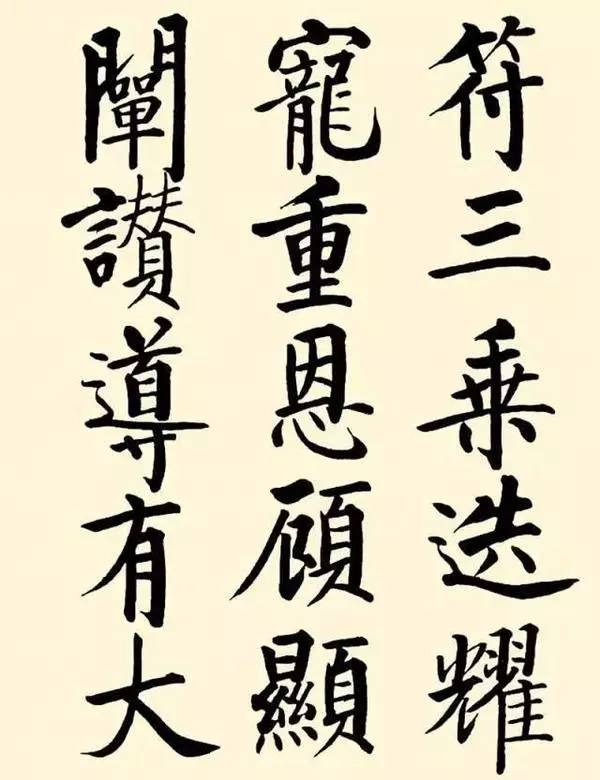 符三乘迭耀
寵重恩顧顯
闡讚導有大